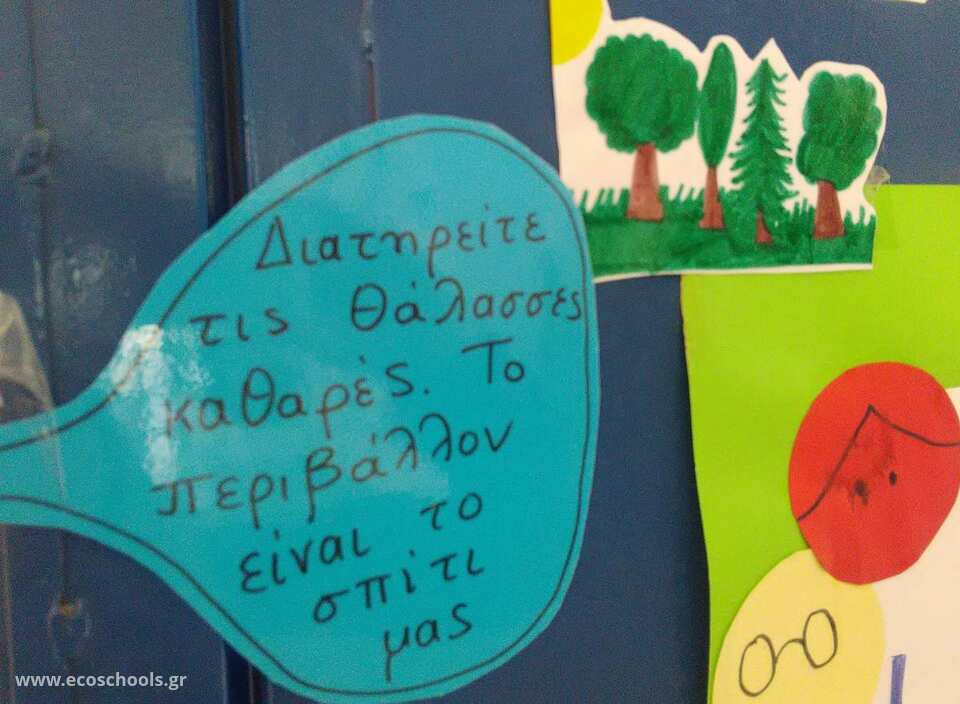 Διατηρείτε
τις θάλασσες
καθαρές. Το
περιβάλλον
είναι το
σπίτι
μας
www.ecoschools.gr